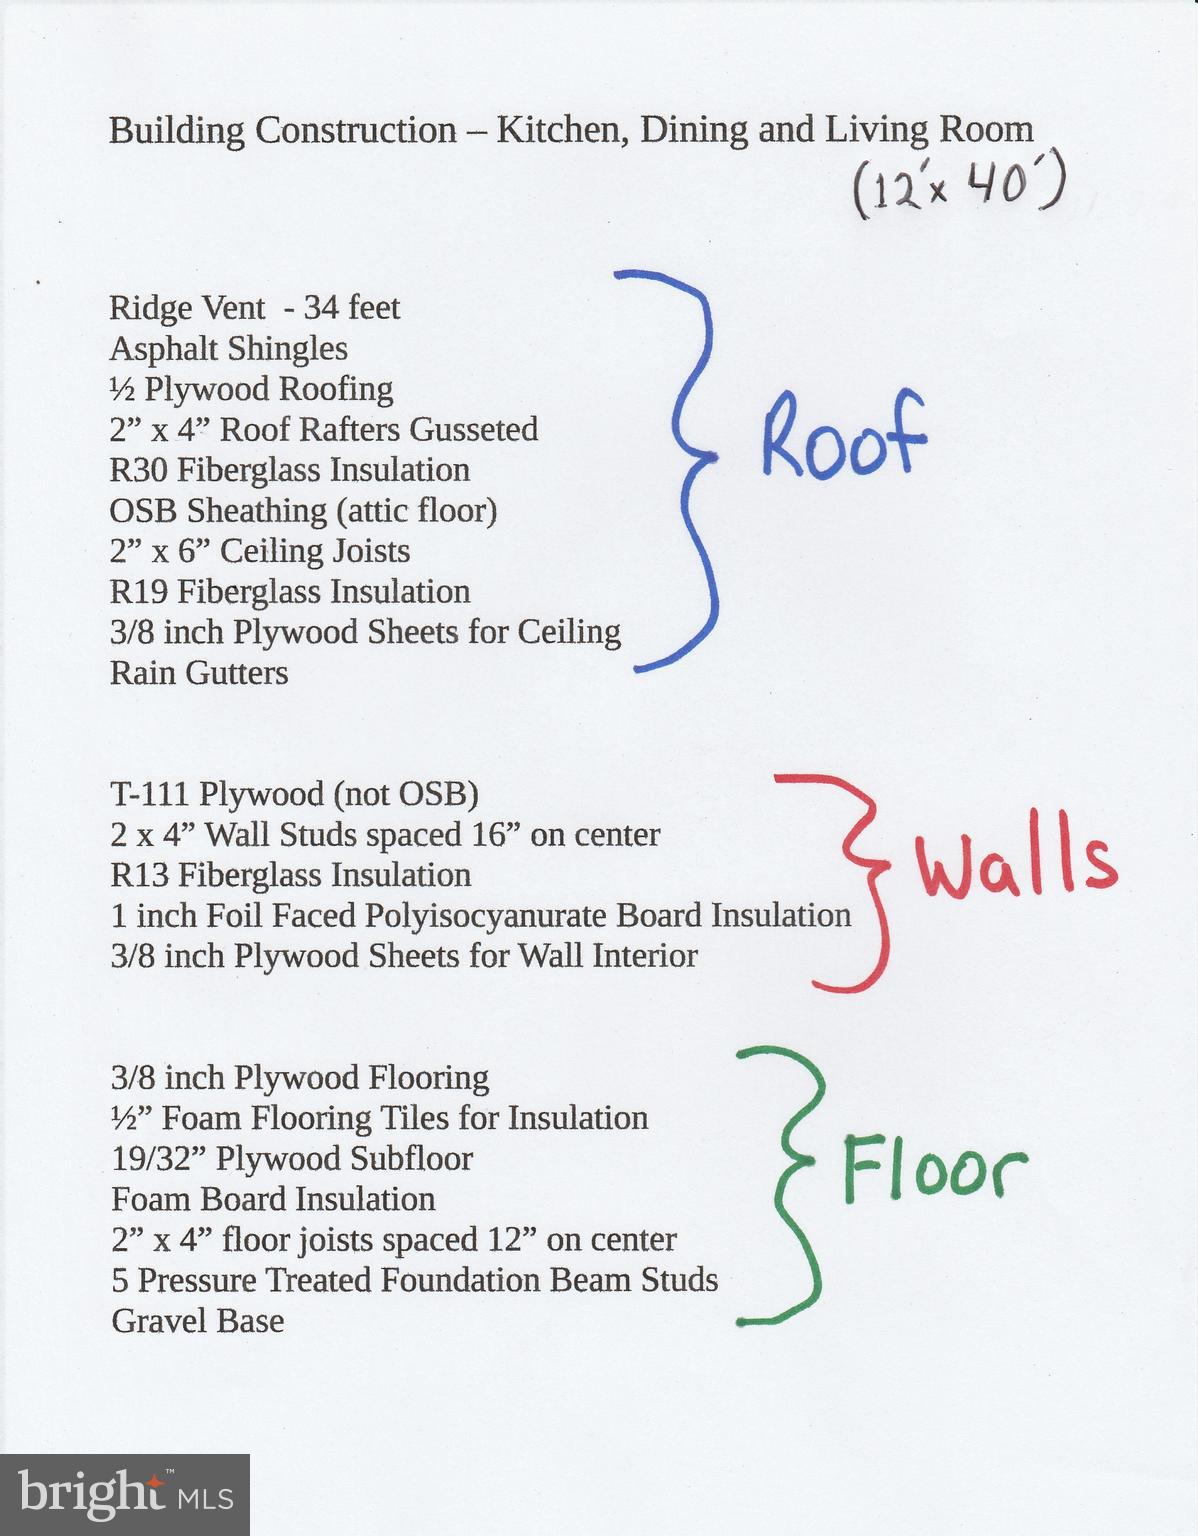 Building Construction – Kitchen, Dining and Living Room
(12' x 40')
Ridge Vent - 34 feet
Asphalt Shingles
½ Plywood Roofing
2” x 4” Roof Rafters Gusseted
R30 Fiberglass Insulation
OSB Sheathing (attic floor)
2” x 6” Ceiling Joists
R19 Fiberglass Insulation
3/8 inch Plywood Sheets for Ceiling
Rain Gutters
Roof
T-111 Plywood (not OSB)
2 x 4” Wall Studs spaced 16” on center
R13 Fiberglass Insulation
1 inch Foil Faced Polyisocyanurate Board Insulation
3/8 inch Plywood Sheets for Wall Interior
Walls
3/8 inch Plywood Flooring
½” Foam Flooring Tiles for Insulation
19/32” Plywood Subfloor
Foam Board Insulation
2” x 4” floor joists spaced 12” on center
5 Pressure Treated Foundation Beam Studs
Gravel Base
Floor
bright™ MLS